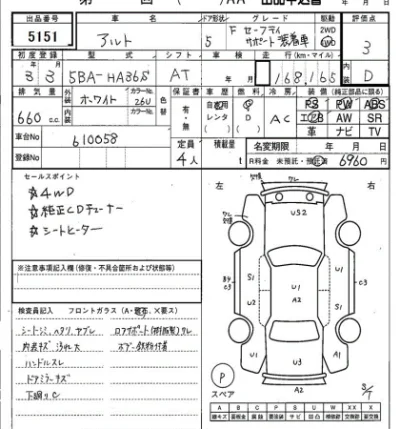 出品番号 車名 ドア形状 グレード 駆動 評価点
5151 アルト 5 F セーフティサポート装着車 2WD 4WD 3
初度登録 型式 シフト 車検 走行(km・マイル) 内装
3年3月 5BA-HA36S AT 年 月 168,165 D
排気量 外装 カラーNo. 色替 保証書 車歴 燃料 冷房 装備(純正部品に限る)
660 c.c. ホワイト 26U 有・無 自家用 レンタ G D AC PS PW ABS
内装 カラーNo. エアB AW SR
革 ナビ TV
車台No 610058 定員 4人 積載量 t 名変期限 年 月 日
登録No R料金 未預託・預託済 6960円
セールスポイント
☆4WD
☆純正CDチューナー
☆シートヒーター
左 右
US2
U1
A2
S1
U2
U1
S1
C3
C3
U1
U3
A1
A2
P
スペア
※注意事項記入欄(修復・不具合箇所および状態等)
検査員記入 フロントガラス(A・飛石、×要ス)
シートシミ、ヘタリ、ヤブレ
内装キズ 汚れ大
ハンドルスレ
ドアミラーキズ
下廻りC
ボデー鉄粉付着
A B C P S U W X XX X